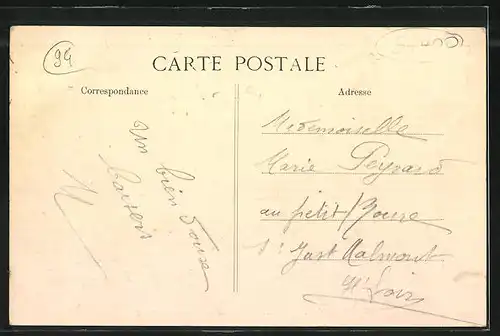 94
CARTE POSTALE
Correspondance
Adresse
Un bien doux
baisers
M
Mademoiselle
Marie Peyrard
au petit
St Just Malmont
Hte Loire